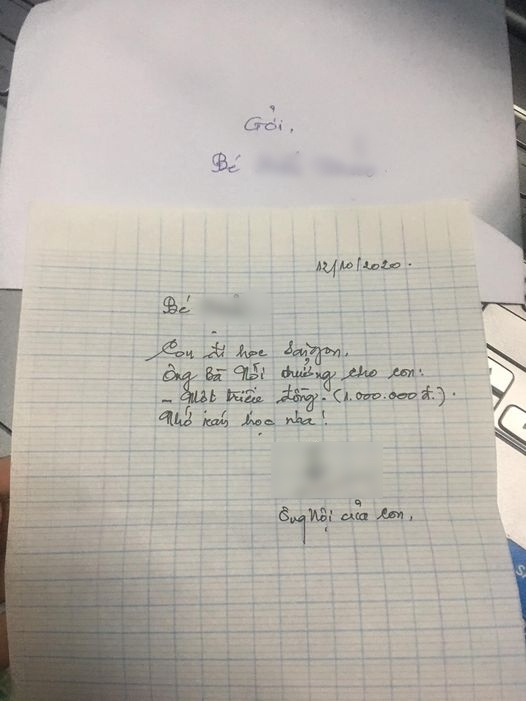 Gởi,
Bé
12/10/2020.
Bé
Con đi học Saigon,
Ông Bà Nội thưởng cho con:
- Một triệu đồng. (1.000.000đ).
Nhớ ráng học nha!
Ông Nội của con,